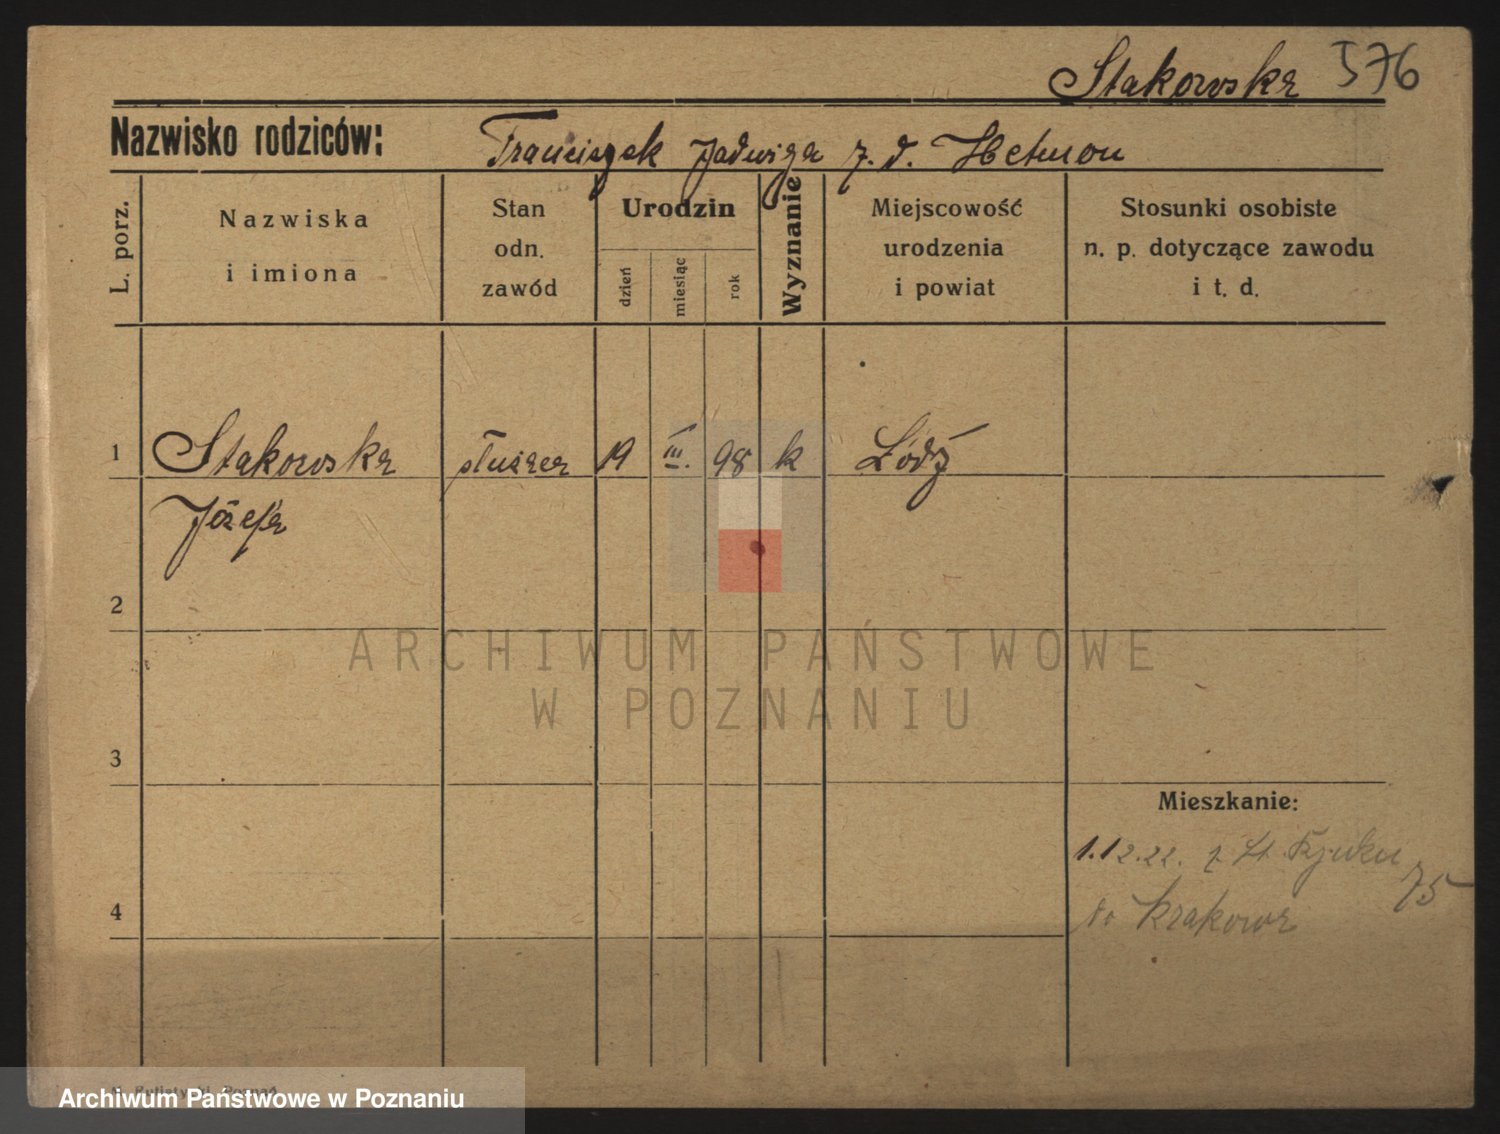 Stakowska 576
Nazwisko rodziców:
Franciszek Jadwiga z. d. Hetmon
L. porz.
Nazwiska
i imiona
Stan
odn.
zawód
Urodzin
dzień
miesiąc
rok
Wyznanie
Miejscowość
urodzenia
i powiat
Stosunki osobiste
n. p. dotyczące zawodu
i t. d.
1 Stakowska służąca 19 III. 98 k Łódź
Józefa
2
3
4
Mieszkanie:
1.12.22. z St. Rynku
75
do Krakowa
ARCHIWUM PAŃSTWOWE
W POZNANIU
Poznań
Archiwum Państwowe w Poznaniu